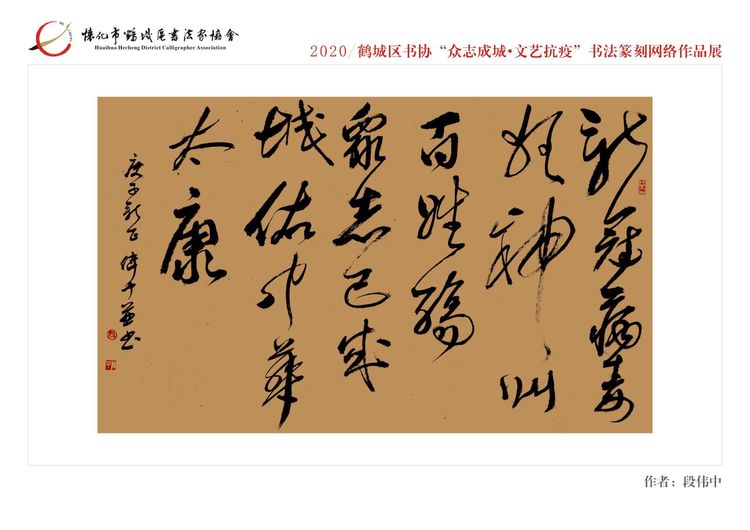 懷化市鶴城區書法家協會
Huaihua Hecheng District Calligrapher Association
2020/鹤城区书协“众志成城·文艺抗疫”书法篆刻网络作品展
新冠病毒
神州
百姓殇
眾志已成
城佑中華
太康
庚子新正偉中並书
作者：段伟中